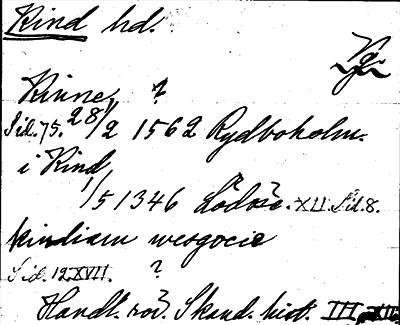 Kind hd.
Vg.
Kinne, ?
Sid. 75. 28/2 1562 Rydboholm.
i Kind
1/5 1346 Lödöse. XII. Sid. 8.
kindiam wesgocie
Sid. 12. XVII. ?
Handl. rör. Skand. hist. III, XII